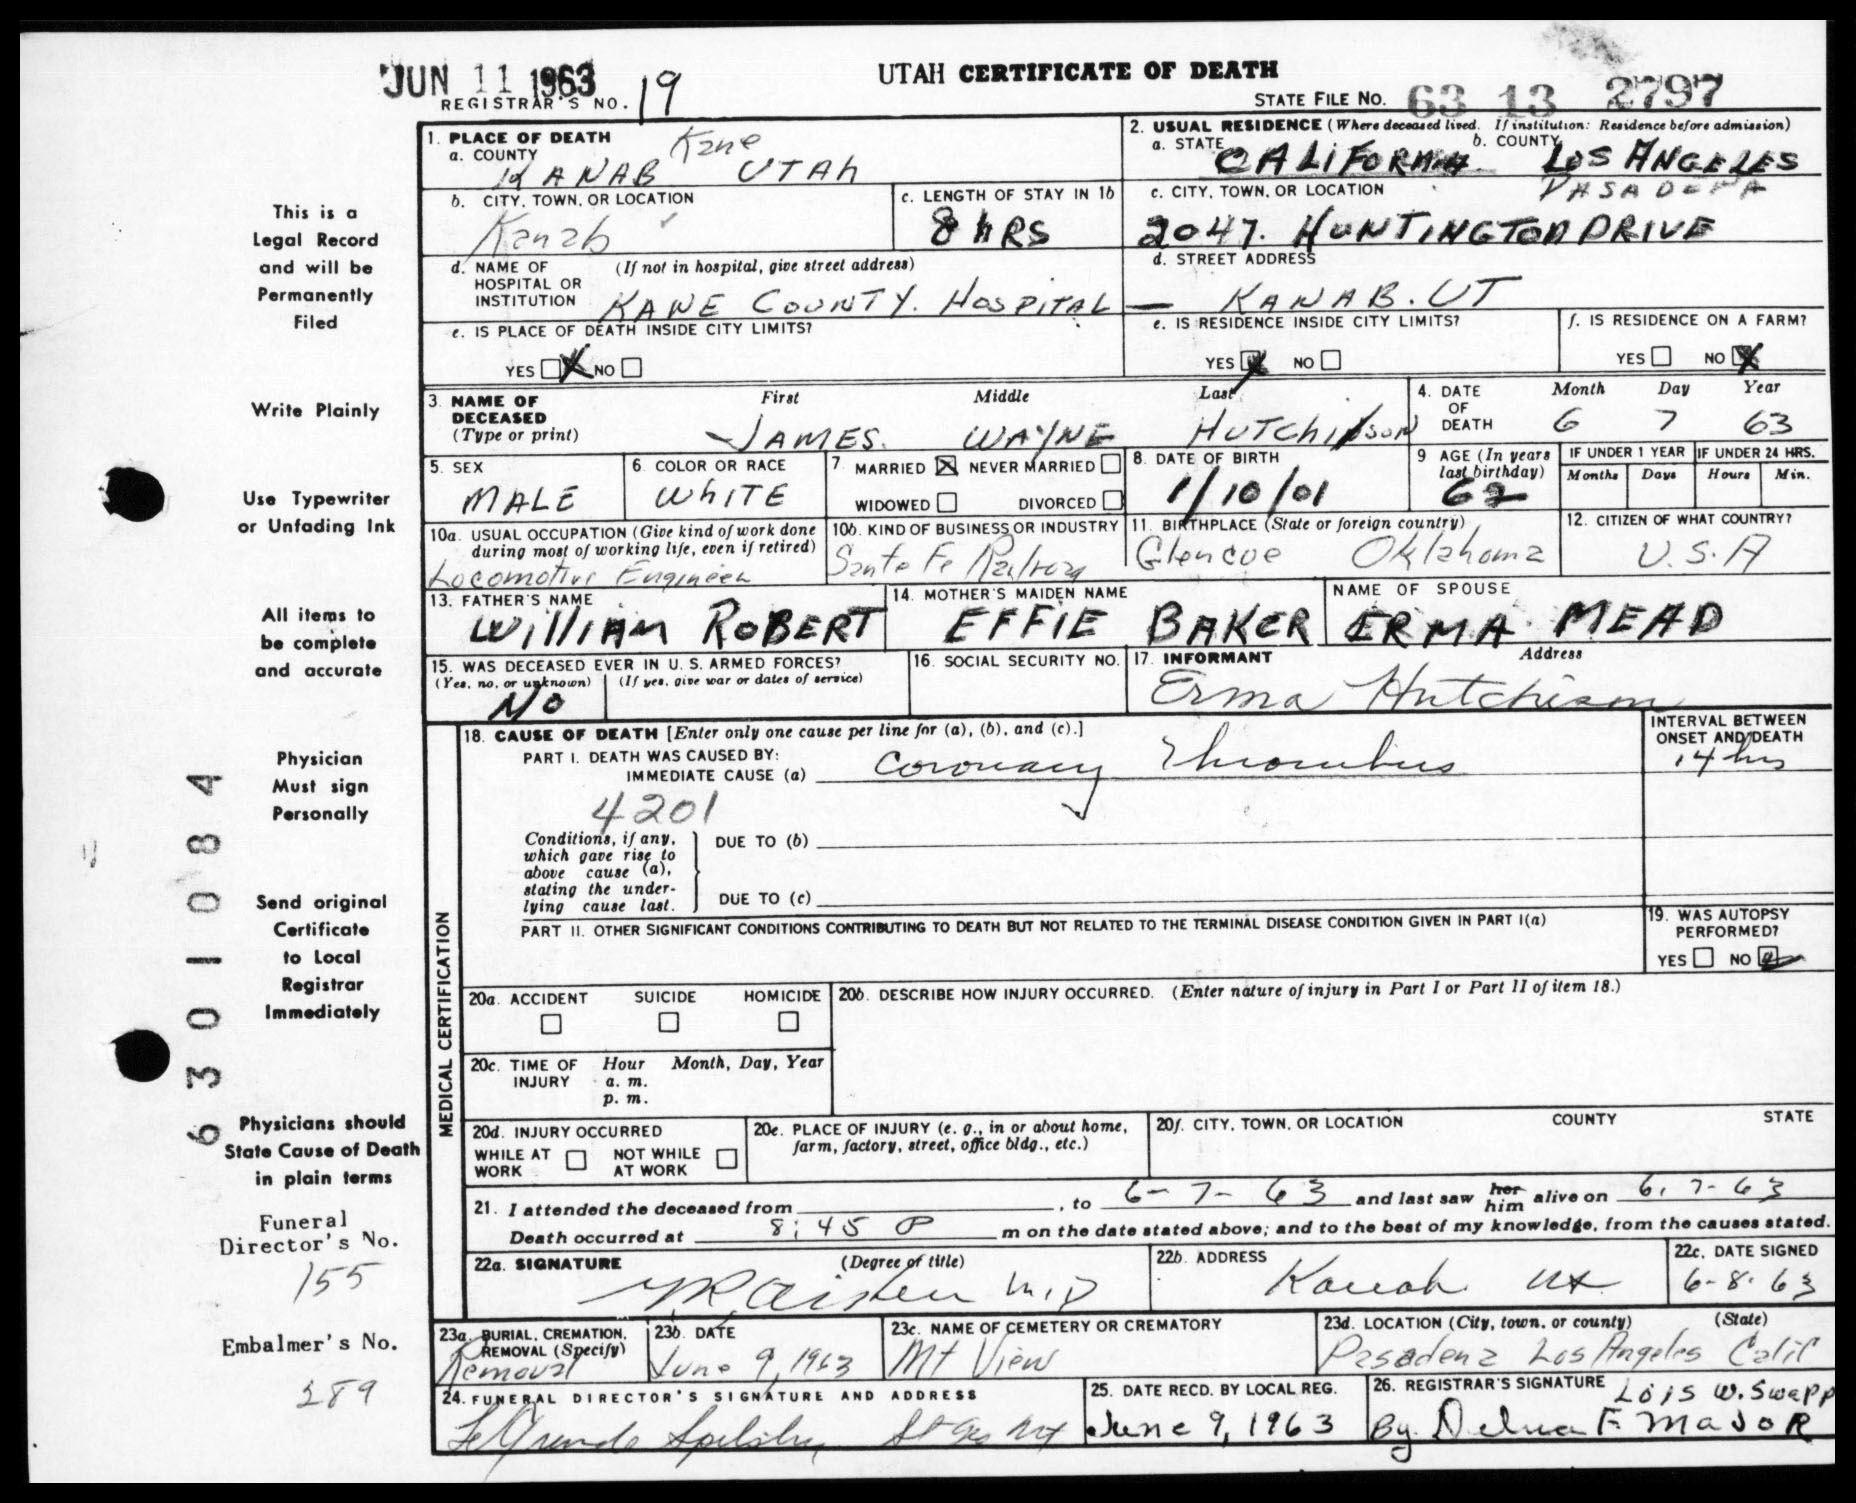 JUN 11 1963
UTAH CERTIFICATE OF DEATH
REGISTRAR'S NO. 19
STATE FILE NO. 63 13 2797
1. PLACE OF DEATH
a. COUNTY Kane
KANAB UTAH
2. USUAL RESIDENCE (Where deceased lived. If institution: Residence before admission)
a. STATE CALIFORNIA b. COUNTY LOS ANGELES
b. CITY, TOWN, OR LOCATION
Kanab
c. LENGTH OF STAY IN 1b
8 hRS
c. CITY, TOWN, OR LOCATION PASADENA
2047. HUNTINGTON DRIVE
d. NAME OF HOSPITAL OR INSTITUTION (If not in hospital, give street address)
KANE COUNTY. HOSPITAL
d. STREET ADDRESS
— KANAB. UT
e. IS PLACE OF DEATH INSIDE CITY LIMITS?
YES X NO
e. IS RESIDENCE INSIDE CITY LIMITS?
YES X NO
f. IS RESIDENCE ON A FARM?
YES NO X
3. NAME OF DECEASED (Type or print)
First Middle Last
JAMES. WAYNE HUTCHISON
4. DATE OF DEATH Month Day Year
6 7 63
5. SEX
MALE
6. COLOR OR RACE
WHITE
7. MARRIED X NEVER MARRIED
WIDOWED DIVORCED
8. DATE OF BIRTH
1/10/01
9 AGE (In years last birthday)
62
IF UNDER 1 YEAR
Months Days
IF UNDER 24 HRS.
Hours Min.
10a. USUAL OCCUPATION (Give kind of work done during most of working life, even if retired)
Locomotive Engineer
10b. KIND OF BUSINESS OR INDUSTRY
Sante Fe Railroad
11. BIRTHPLACE (State or foreign country)
Glencoe Oklahoma
12. CITIZEN OF WHAT COUNTRY?
U.S.A
13. FATHER'S NAME
William ROBERT
14. MOTHER'S MAIDEN NAME
EFFIE BAKER
NAME OF SPOUSE
ERMA MEAD
15. WAS DECEASED EVER IN U. S. ARMED FORCES?
(Yes, no, or unknown) (If yes, give war or dates of service)
No
16. SOCIAL SECURITY NO.
17. INFORMANT Address
Erma Hutchison
MEDICAL CERTIFICATION
18. CAUSE OF DEATH [Enter only one cause per line for (a), (b), and (c).]
INTERVAL BETWEEN ONSET AND DEATH
PART I. DEATH WAS CAUSED BY:
IMMEDIATE CAUSE (a) Coronary Thrombus
14 hrs
4201
Conditions, if any, which gave rise to above cause (a), stating the underlying cause last.
DUE TO (b)
DUE TO (c)
PART II. OTHER SIGNIFICANT CONDITIONS CONTRIBUTING TO DEATH BUT NOT RELATED TO THE TERMINAL DISEASE CONDITION GIVEN IN PART I(a)
19. WAS AUTOPSY PERFORMED?
YES NO
20a. ACCIDENT SUICIDE HOMICIDE
20b. DESCRIBE HOW INJURY OCCURRED. (Enter nature of injury in Part I or Part II of item 18.)
20c. TIME OF INJURY Hour Month, Day, Year
a. m.
p. m.
20d. INJURY OCCURRED
WHILE AT WORK NOT WHILE AT WORK
20e. PLACE OF INJURY (e. g., in or about home, farm, factory, street, office bldg., etc.)
20f. CITY, TOWN, OR LOCATION COUNTY STATE
21. I attended the deceased from , to 6-7-63 and last saw her him alive on 6.7-63
Death occurred at 8:45 P m on the date stated above; and to the best of my knowledge, from the causes stated.
22a. SIGNATURE (Degree of title)
Aiken M.D
22b. ADDRESS
Kanab Ut
22c. DATE SIGNED
6-8-63
23a. BURIAL, CREMATION, REMOVAL (Specify)
Removal
23b. DATE
June 9, 1963
23c. NAME OF CEMETERY OR CREMATORY
Mt View
23d. LOCATION (City, town, or county) (State)
Pasadena Los Angeles Calif
24. FUNERAL DIRECTOR'S SIGNATURE AND ADDRESS
25. DATE RECD. BY LOCAL REG.
June 9, 1963
26. REGISTRAR'S SIGNATURE Lois W. Swapp
By Delna F. MAJOR
This is a
Legal Record
and will be
Permanently
Filed
Write Plainly
Use Typewriter
or Unfading Ink
All items to
be complete
and accurate
Physician
Must sign
Personally
Send original
Certificate
to Local
Registrar
Immediately
Physicians should
State Cause of Death
in plain terms
Funeral
Director's No.
155
Embalmer's No.
289
6301084